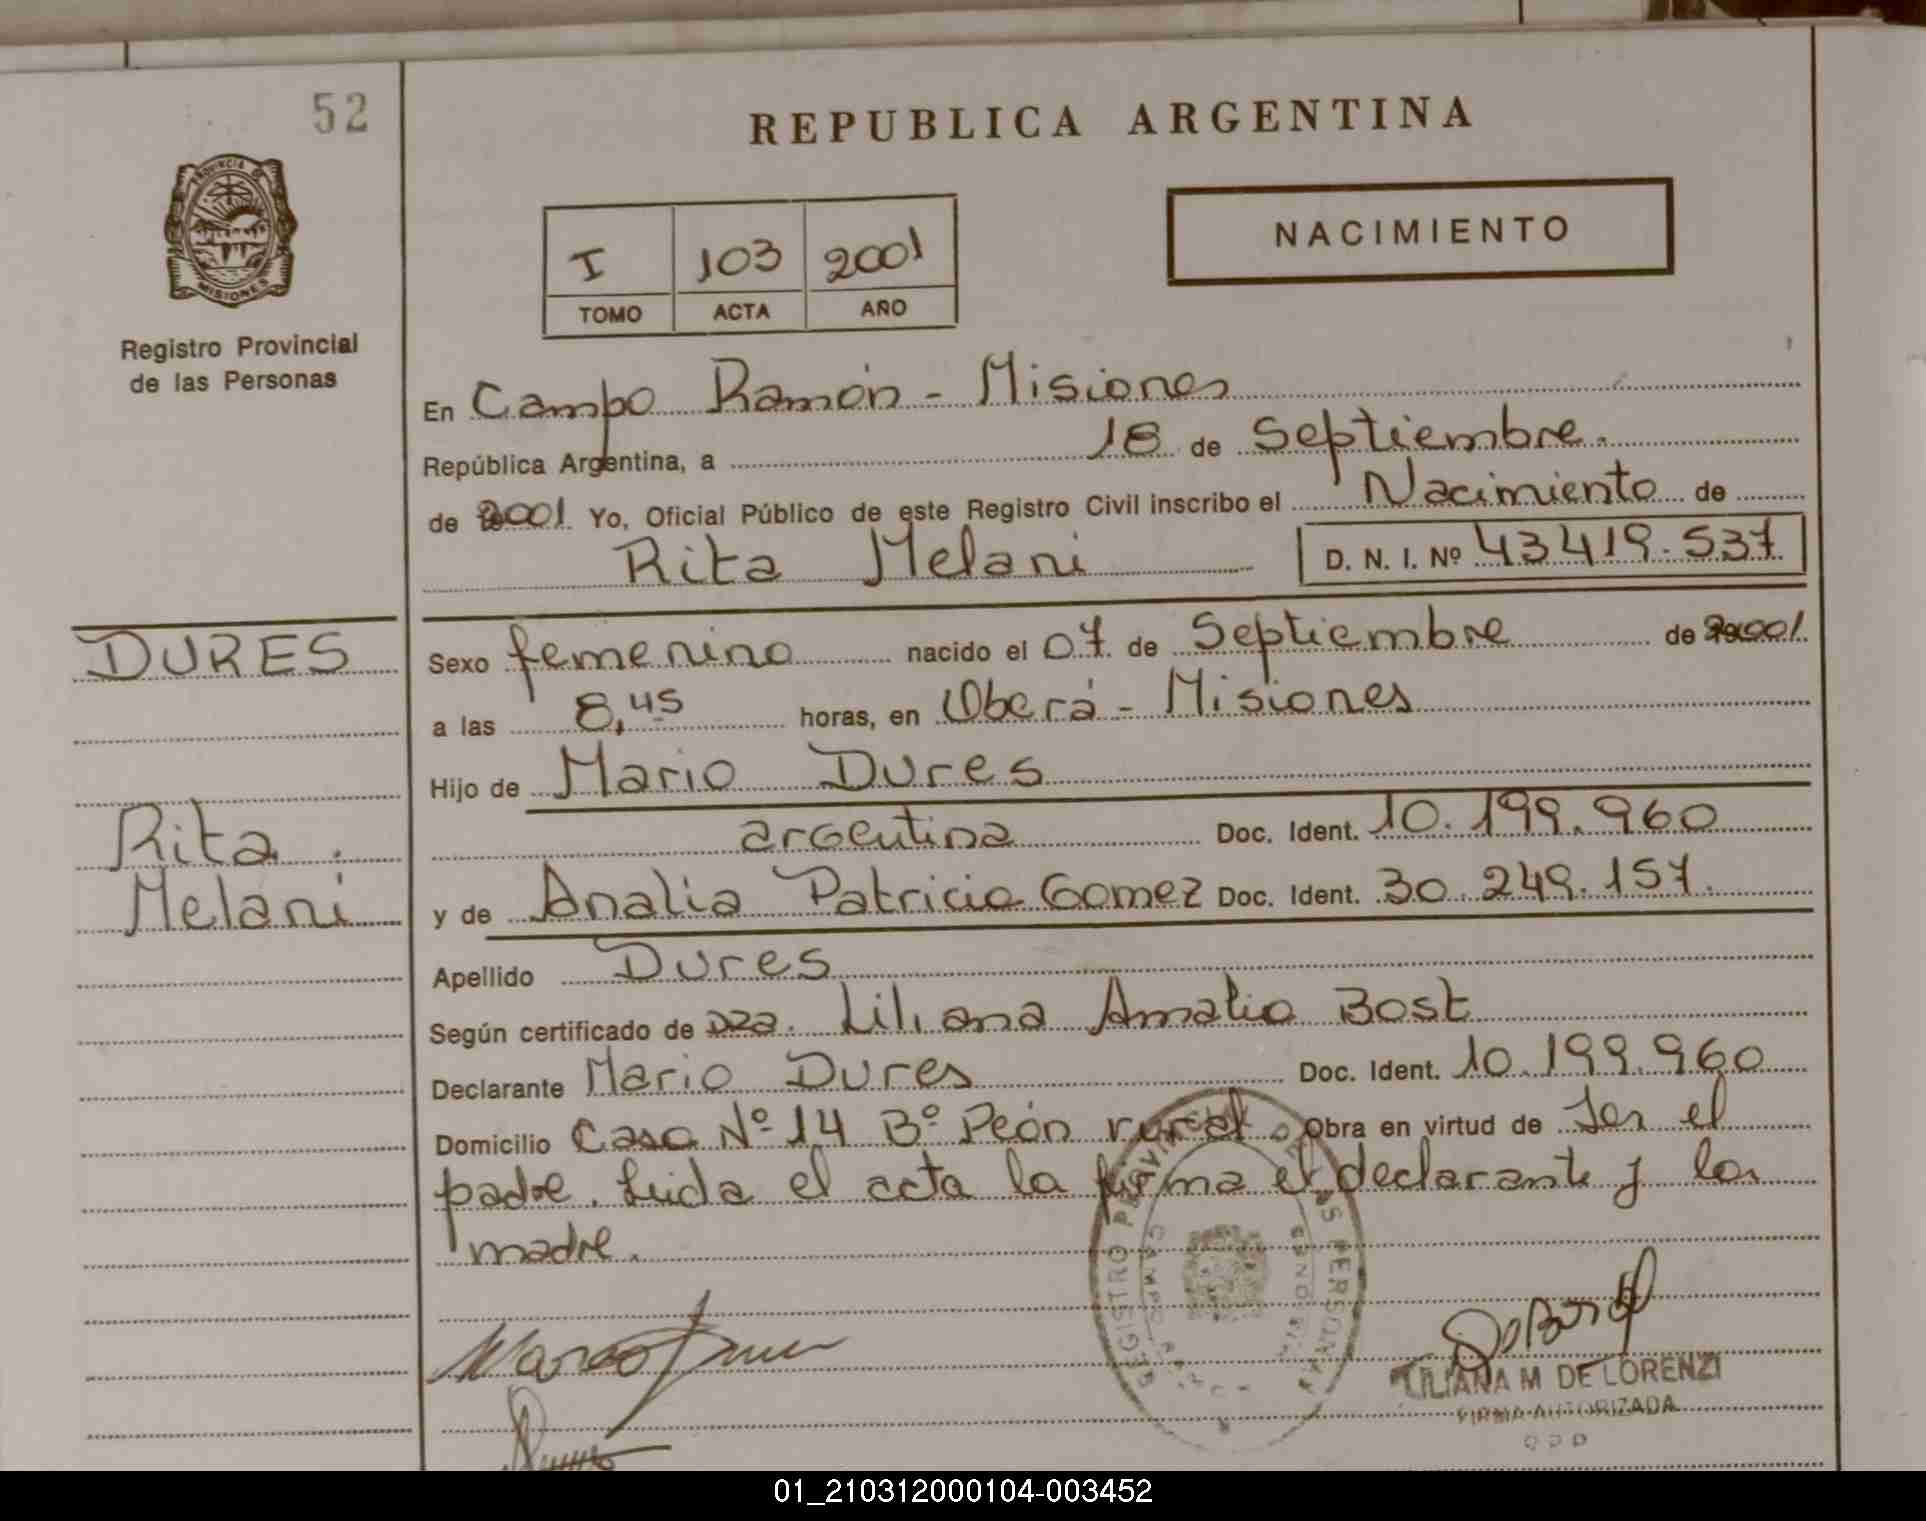 52
REPUBLICA ARGENTINA
PROVINCIA DE
MISIONES
Registro Provincial
de las Personas
I 103 2001
TOMO ACTA AÑO
NACIMIENTO
En Campo Ramón - Misiones
República Argentina, a 18 de Septiembre.
de 2001 Yo, Oficial Público de este Registro Civil inscribo el Nacimiento de
Rita Melani D. N. I. Nº 43419.537
DURES
Sexo femenino nacido el 07 de Septiembre de 2001
a las 8,45 horas, en Oberá - Misiones
Hijo de Mario Dures
argentina Doc. Ident. 10.199.960
Rita
Melani
y de Analia Patricia Gomez Doc. Ident. 30.249.157.
Apellido Dures
Según certificado de Dra. Liliana Amalia Bost
Declarante Mario Dures Doc. Ident. 10.199.960
Domicilio Casa Nº 14 Bº Peón rural. Obra en virtud de Ser el
padre. Leida el acta la firma el declarante y la
madre.
REGISTRO PROVINCIAL DE LAS PERSONAS
CAMPO RAMON MISIONES
LILIANA M DE LORENZI
FIRMA AUTORIZADA
01_210312000104-003452